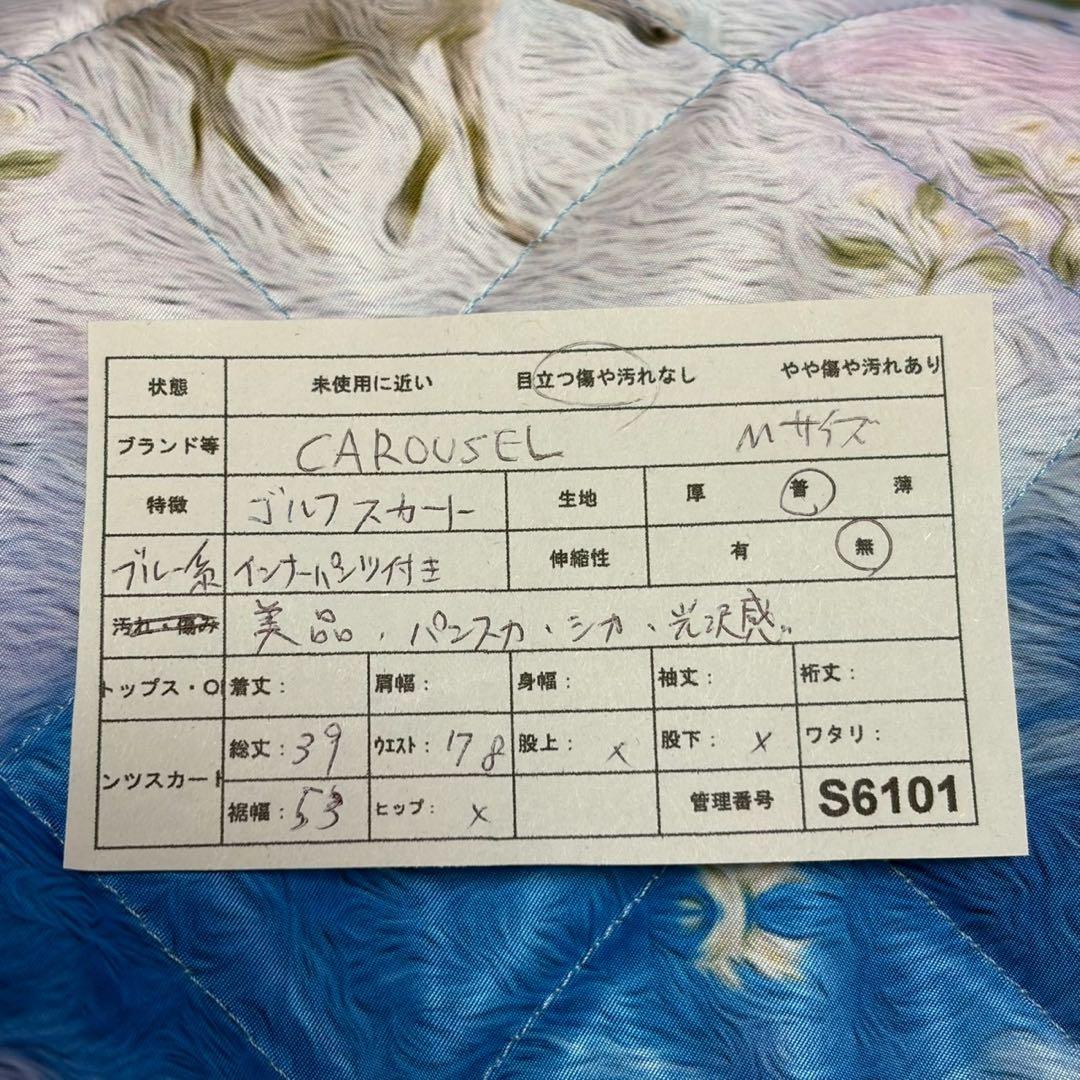 状態 未使用に近い 目立つ傷や汚れなし やや傷や汚れあり
ブランド等 CAROUSEL Mサイズ
特徴 ゴルフスカート 生地 厚 普 薄
ブルー系 インナーパンツ付き 伸縮性 有 無
汚れ・傷み 美品、パンスカ、シカ、光沢感。
トップス・O 着丈: 肩幅: 身幅: 袖丈: 裄丈:
ンツスカート 総丈:39 ウエスト:78 股上:× 股下:× ワタリ:
裾幅:53 ヒップ:× 管理番号 S6101